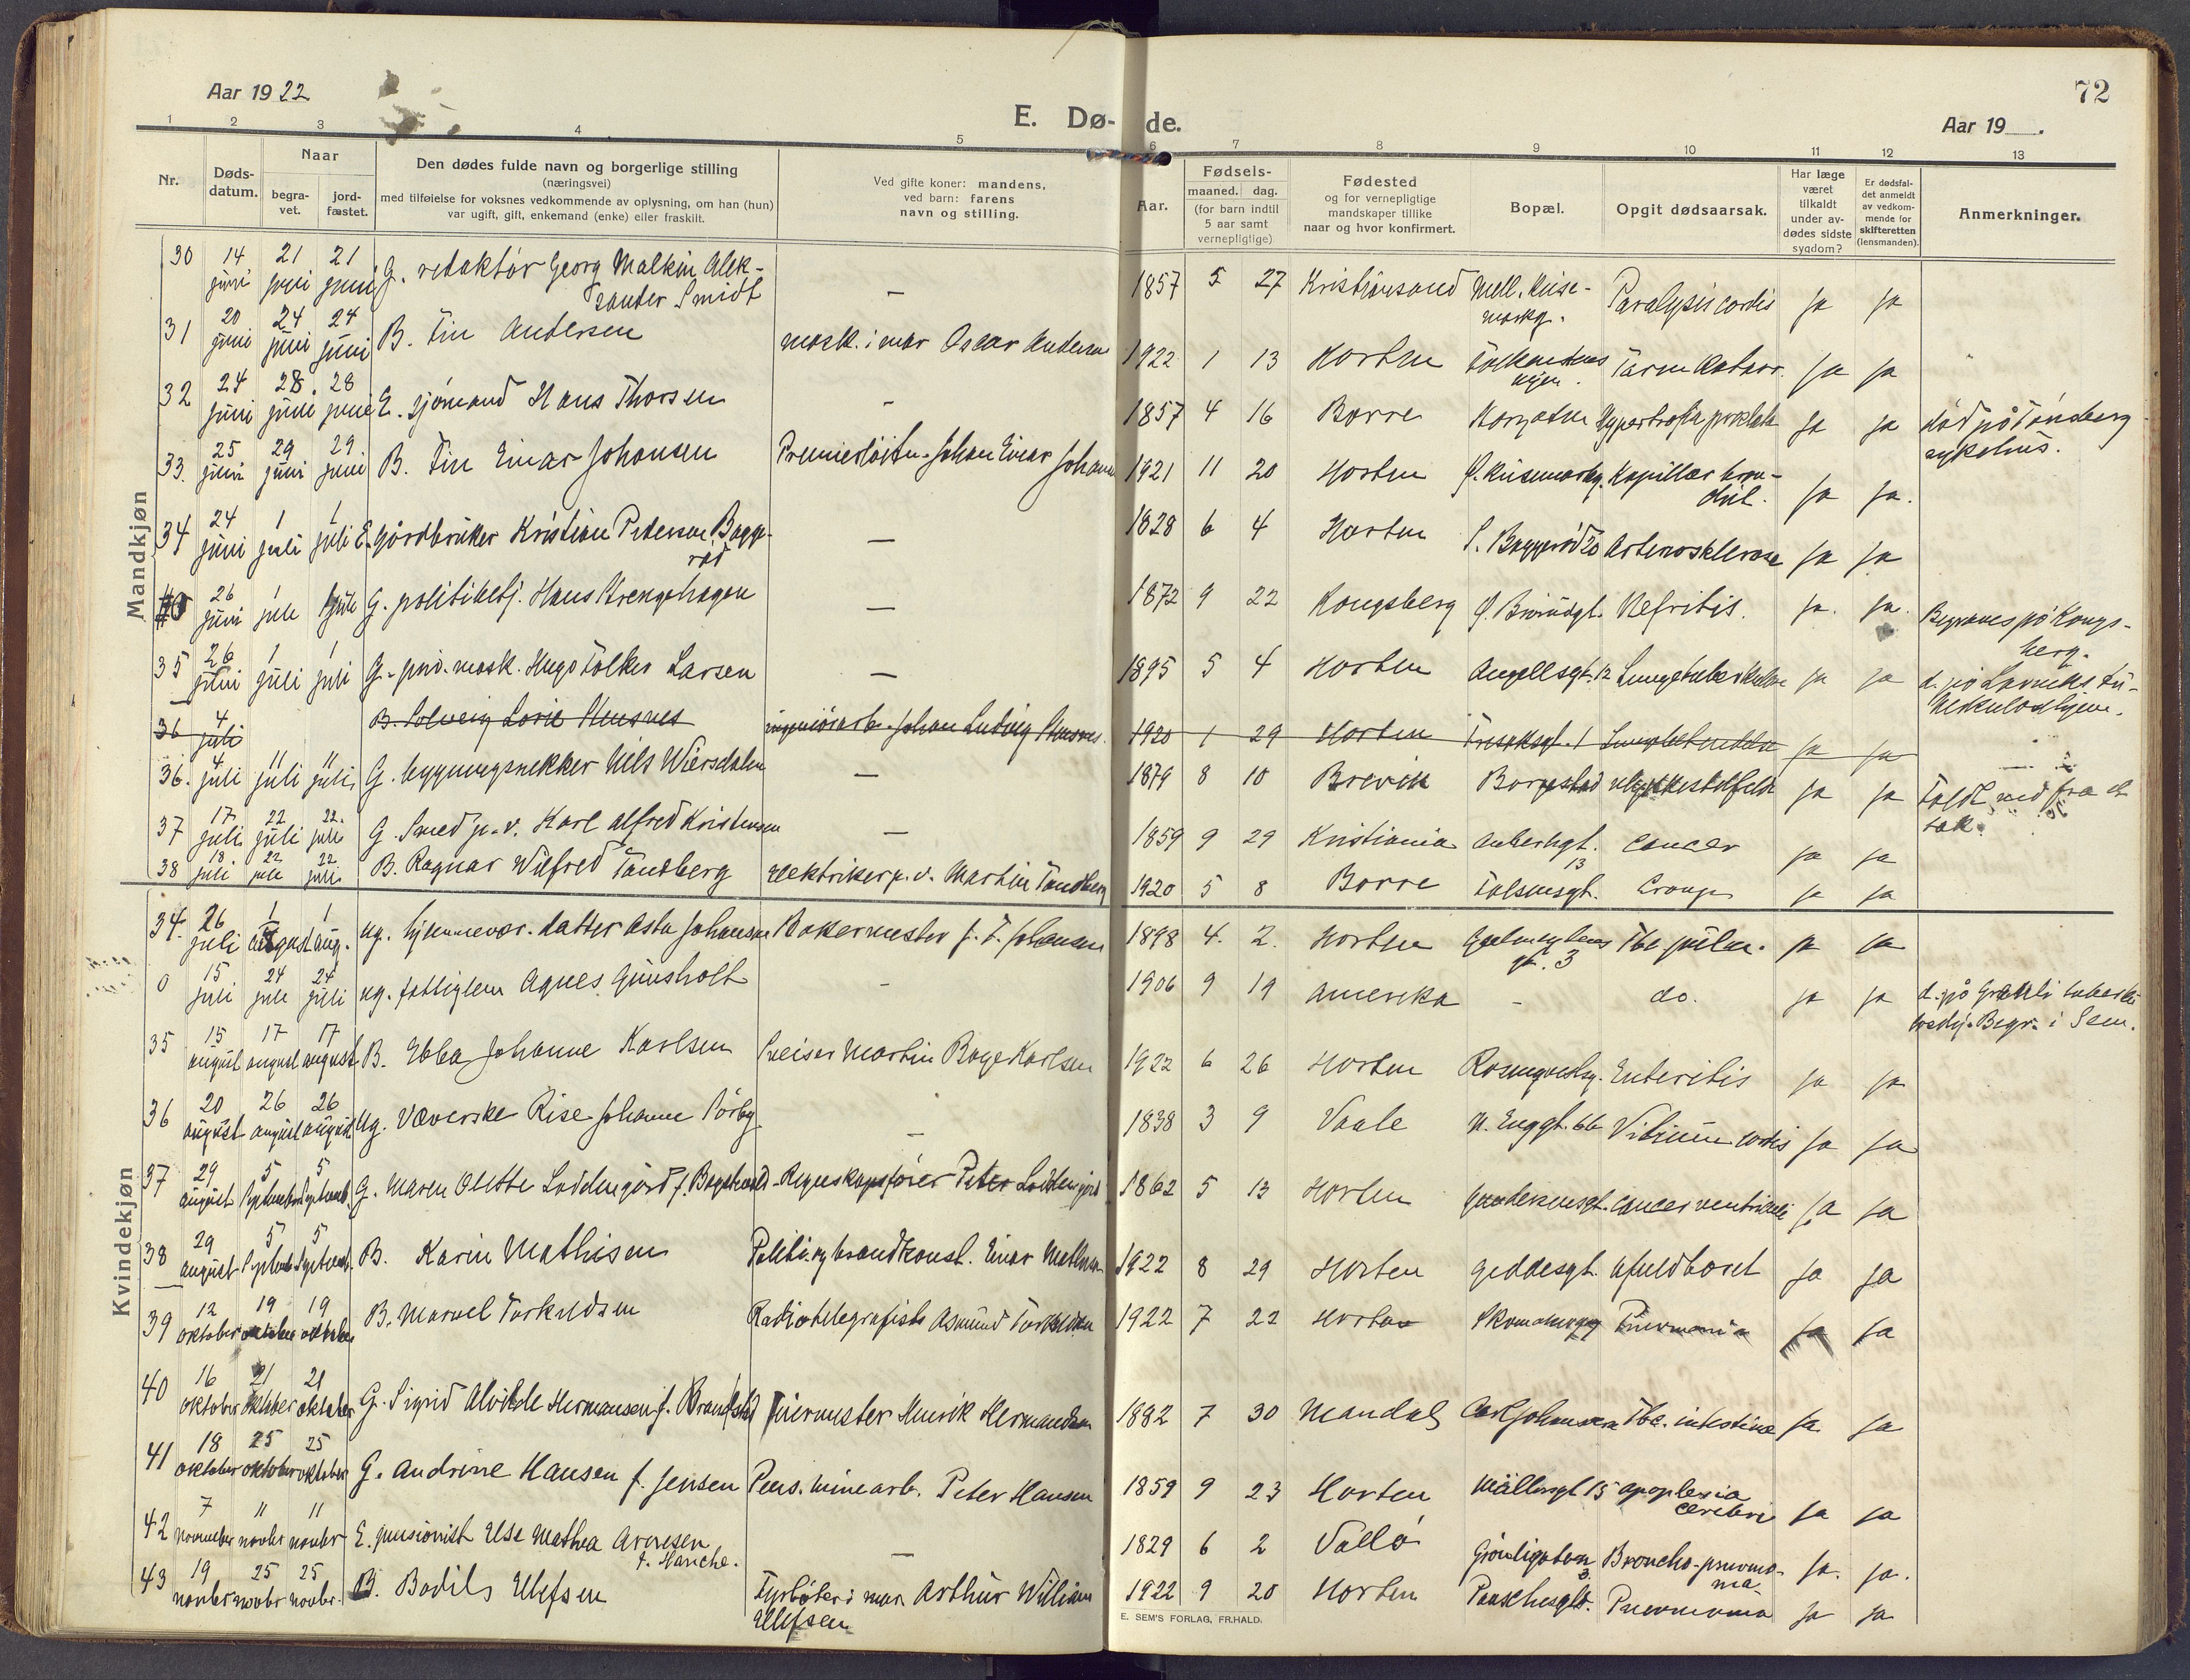 72
Aar 1922
E. Dø- de.
Aar 19__.
1 2 3 4 5 6 7 8 9 10 11 12 13
Nr.
Døds-
datum.
Naar
begra-
vet.
jord-
fæstet.
Den dødes fulde navn og borgerlige stilling
(næringsvei)
med tilføielse for voksnes vedkommende av oplysning, om han (hun)
var ugift, gift, enkemand (enke) eller fraskilt.
Ved gifte koner: mandens,
ved barn: farens
navn og stilling.
Aar.
Fødsels-
maaned. dag.
(for barn indtil
5 aar samt
vernepligtige)
Fødested
og for vernepligtige
mandskaper tillike
naar og hvor konfirmert.
Bopæl.
Opgit dødsaarsak.
Har læge
været
tilkaldt
under av-
dødes sidste
sygdom?
Er dødsfal-
det anmeldt
av vedkom-
mende for
skifteretten
(lensmanden).
Anmerkninger.
Mandkjøn
30 14 juni 21 juni 21 juni G. redaktør Georg Malkin Alek-
sander Smidt — 1857 5 27 Kristiansand Mell. Kise-
markg. Paralysis cordis ja ja
31 20 juni 24 juni 24 juni B. Fin Andersen mask. i mar Oscar Andersen 1922 1 13 Horten Tarm Katarr. ja ja
32 24 juni 28 juni 28 juni E. sjømand Hans Thorsen - 1857 4 16 Borre Korsgaten Hypertrofia prostata ja ja død på Tønsberg
sykehus.
33. 25 juni 29 juni 29. juni B. Fin Einar Johansen Premierløitn. Johan Einar Johansen 1921 11 20 Horten Ø. Kisemarkg. Kapillær bron-
chit. ja ja.
34 24 juni 1 juli 1 juli E. gårdbruker Kristian Petersen Bagge-
rød — 1828 6 4 Horten S. Baggerød 20 Arteriosklerose ja ja
0 26 juni 1 juli 1 juli G. politibetj. Hans Strengehagen — 1872 9 22 Kongsberg Ø. Braarudgt. Nefritis. ja. ja. Begraves på Kongs-
berg.
35 26 juni 1 juli 1 juli G. prov. mask. Hugo Folker Larsen — 1895 5 4 Horten Angellsgt. 12 Lungetuberkulose ja ja d. på Larviks tu-
berkuloshjem.
36 4 juli B. Solveig Lovise Stusnes ingeniørarb. Johan Ludvig Stusnes. 1920 1 29 Horten ja ja
36. 4 juli 11 juli 11 juli G. bygningsnekker Nils Wiersdalen — 1879 8 10 Brevik Borgestad ulykkestilfelde ja ja Faldt ned fra et
tak.
37 17. juli 22 juli 22. juli G. Smed p.v. Karl Alfred Kristensen — 1859 9 29 Kristiania Ankerhgt.
13 Cancer ja ja
38 18 juli 22 juli 22 juli B. Ragnar Wilfred Tandberg Elektriker p.v. Martin Tandberg 1920 5 8 Borre Falsensgt. Croup ja ja
Kvindekjøn
34. 26 juli 1 august 1 aug. ug. hjemmevær. datter Asta Johansen Bakermester J. F. Johansen 1898 4. 2. Horten
gt. 3 Tbc. pulm. ja ja
0 15 juli 24 juli 24 juli ug. fattiglem Agnes Gunsholt - 1906 9 19 Amerika - do. ja ja d. på Grøtli tuberku-
losehj. Begr. i Sem.
35 15 august 17 august 17 august B. Ebba Johanne Karlsen Dreiser Martin Bøge Karlsen 1922 6 26 Horten Rosenqvistsg. Enteritis ja ja
36 20 august 26 august 26 august Ug. Væverske Rise Johanne Sørby. — 1838 3 9 Vaale N. Enggt. 66 Vitium cordis ja ja
37 29 august 5 September 5 Septemb. G. Maren Olette Loddengård f. Bogstrand Regnskapsfører Peter Loddengård 1862 5 13 Horten Gundersensgt. cancer ventriculi ja ja
38 29 august 5 Septemb. 5 Septemb. B. Karin Mathisen Politi og brandkonst. Einar Mathisen 1922 8 29 Horten Geddesgt. Ufuldbaret ja ja
39 12 oktober 19 oktober 19 oktober B. Marvel Torkildsen Radiotelegrafist Asmund Torkildsen 1922 7 22 Horten Skomakergt Pneumonia ja ja
40 16 oktober 21 oktober 21 oktober G. Sigrid Alvilde Hermansen f. Brandstad Murermester Henrik Hermansen 1882 7 30 Mandal Carl Johansen Tbc. intestina ja ja
41 18 oktober 25 oktober 25 oktober G. Andrine Hansen f. Jensen Pens. minearb. Peter Hansen 1859 9 23 Horten Møllergt 15 apoplexia
cerebri ja ja
42 7 november 11 novbr 11 novbr E. pensionist Else Mathea Arnesen
f. Hanche. — 1829 6 2 Vallø Grønligaten
3. Broncho-pneumo-
nia ja. ja.
43 19 novbr 25 novbr 25 novbr. B. Bodil Ellefsen Fyrbøter i mar. Arthur William
Ellefsen 1922 9 20 Horten Paaschesgt. Pneumonia ja ja
E. SEM'S FORLAG, FR.HALD.